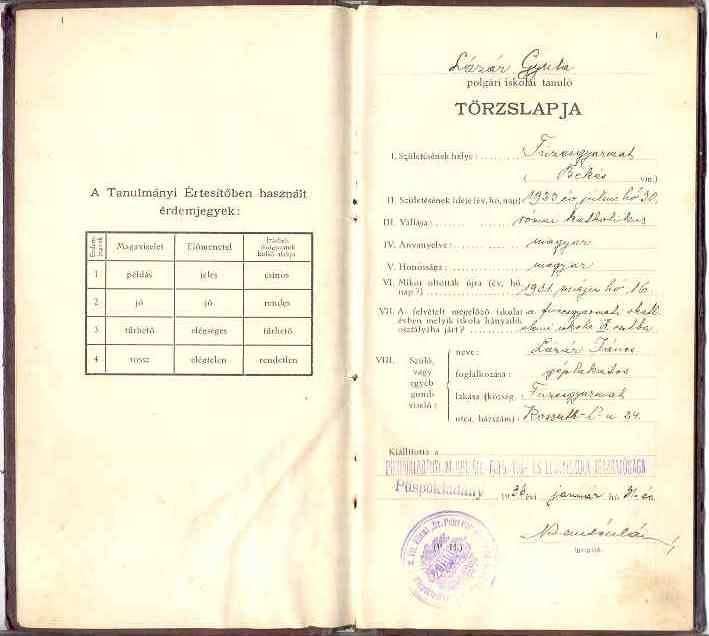 A Tanulmányi Értesítőben használt
érdemjegyek:
Érdem-
jegyek
Magaviselet
Előmenetel
Írásbeli
dolgozatok
külső alakja
1 példás jeles csinos
2 jó jó rendes
3 tűrhető elégséges tűrhető
4 rossz elégtelen rendetlen
1
Lázár Gyula
polgári iskolai tanuló
TÖRZSLAPJA
I. Születésének helye: Füzesgyarmat
( Békés vm.)
II. Születésének ideje (év, hó, nap): 1923 év július hó 30.
III. Vallása: római katholikus
IV. Anyanyelve: magyar
V. Honossága: magyar
VI. Mikor oltották újra (év, hó,
nap?) 1931. hó 16
VII. A felvételt megelőző iskolai
évben melyik iskola hányadik
osztályába járt?
a füzesgyarmati
elemi iskola
VIII. Szülő,
vagy
egyéb
gond-
viselő:
neve: Lázár János
foglalkozása: géplakatos
lakása (község, Füzesgyarmat
utca, házszám): Kossuth L. u 24.
Kiállította a
Püspökladány, 19 évi január hó 31-én
(P. H.)
igazgató.